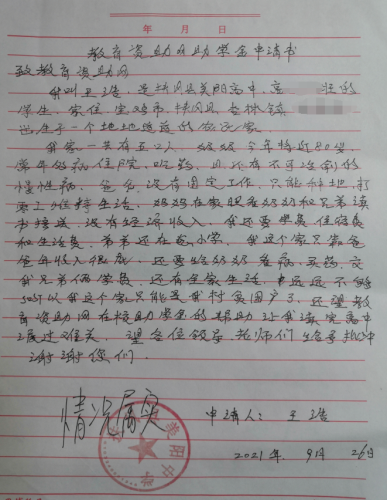 年 月 日
教育资助网助学金申请书
致教育资助网
我叫王浩,是扶风县美阳高中,高 班的
学生,家住宝鸡市扶风县 镇
出生于一个地地道道的农民家。
我家一共有五口人,奶奶今年将近80岁,
常年的病住院,吃药,且还有不可治愈的
慢性病,爸爸没有固定工作,只能种地,打
零工维持生活,妈妈在家照看奶奶和兄弟读
书接送,没有经济收入,我还要学费,住宿费
和生活费,弟弟还在念小学,我这个家只靠爸
爸年收入很低,还要给奶奶看病,买药,交
我兄弟俩学费,还有全家生活,远远不够
所以我这个家只能是我村贫困户了,还望教
育资助网在校助学金的帮助让我读完高中
渡过难关,望各位领导、老师们给予批准
谢谢您们.
情况属实
申请人:王浩
美阳中学
2021年 9月 26日